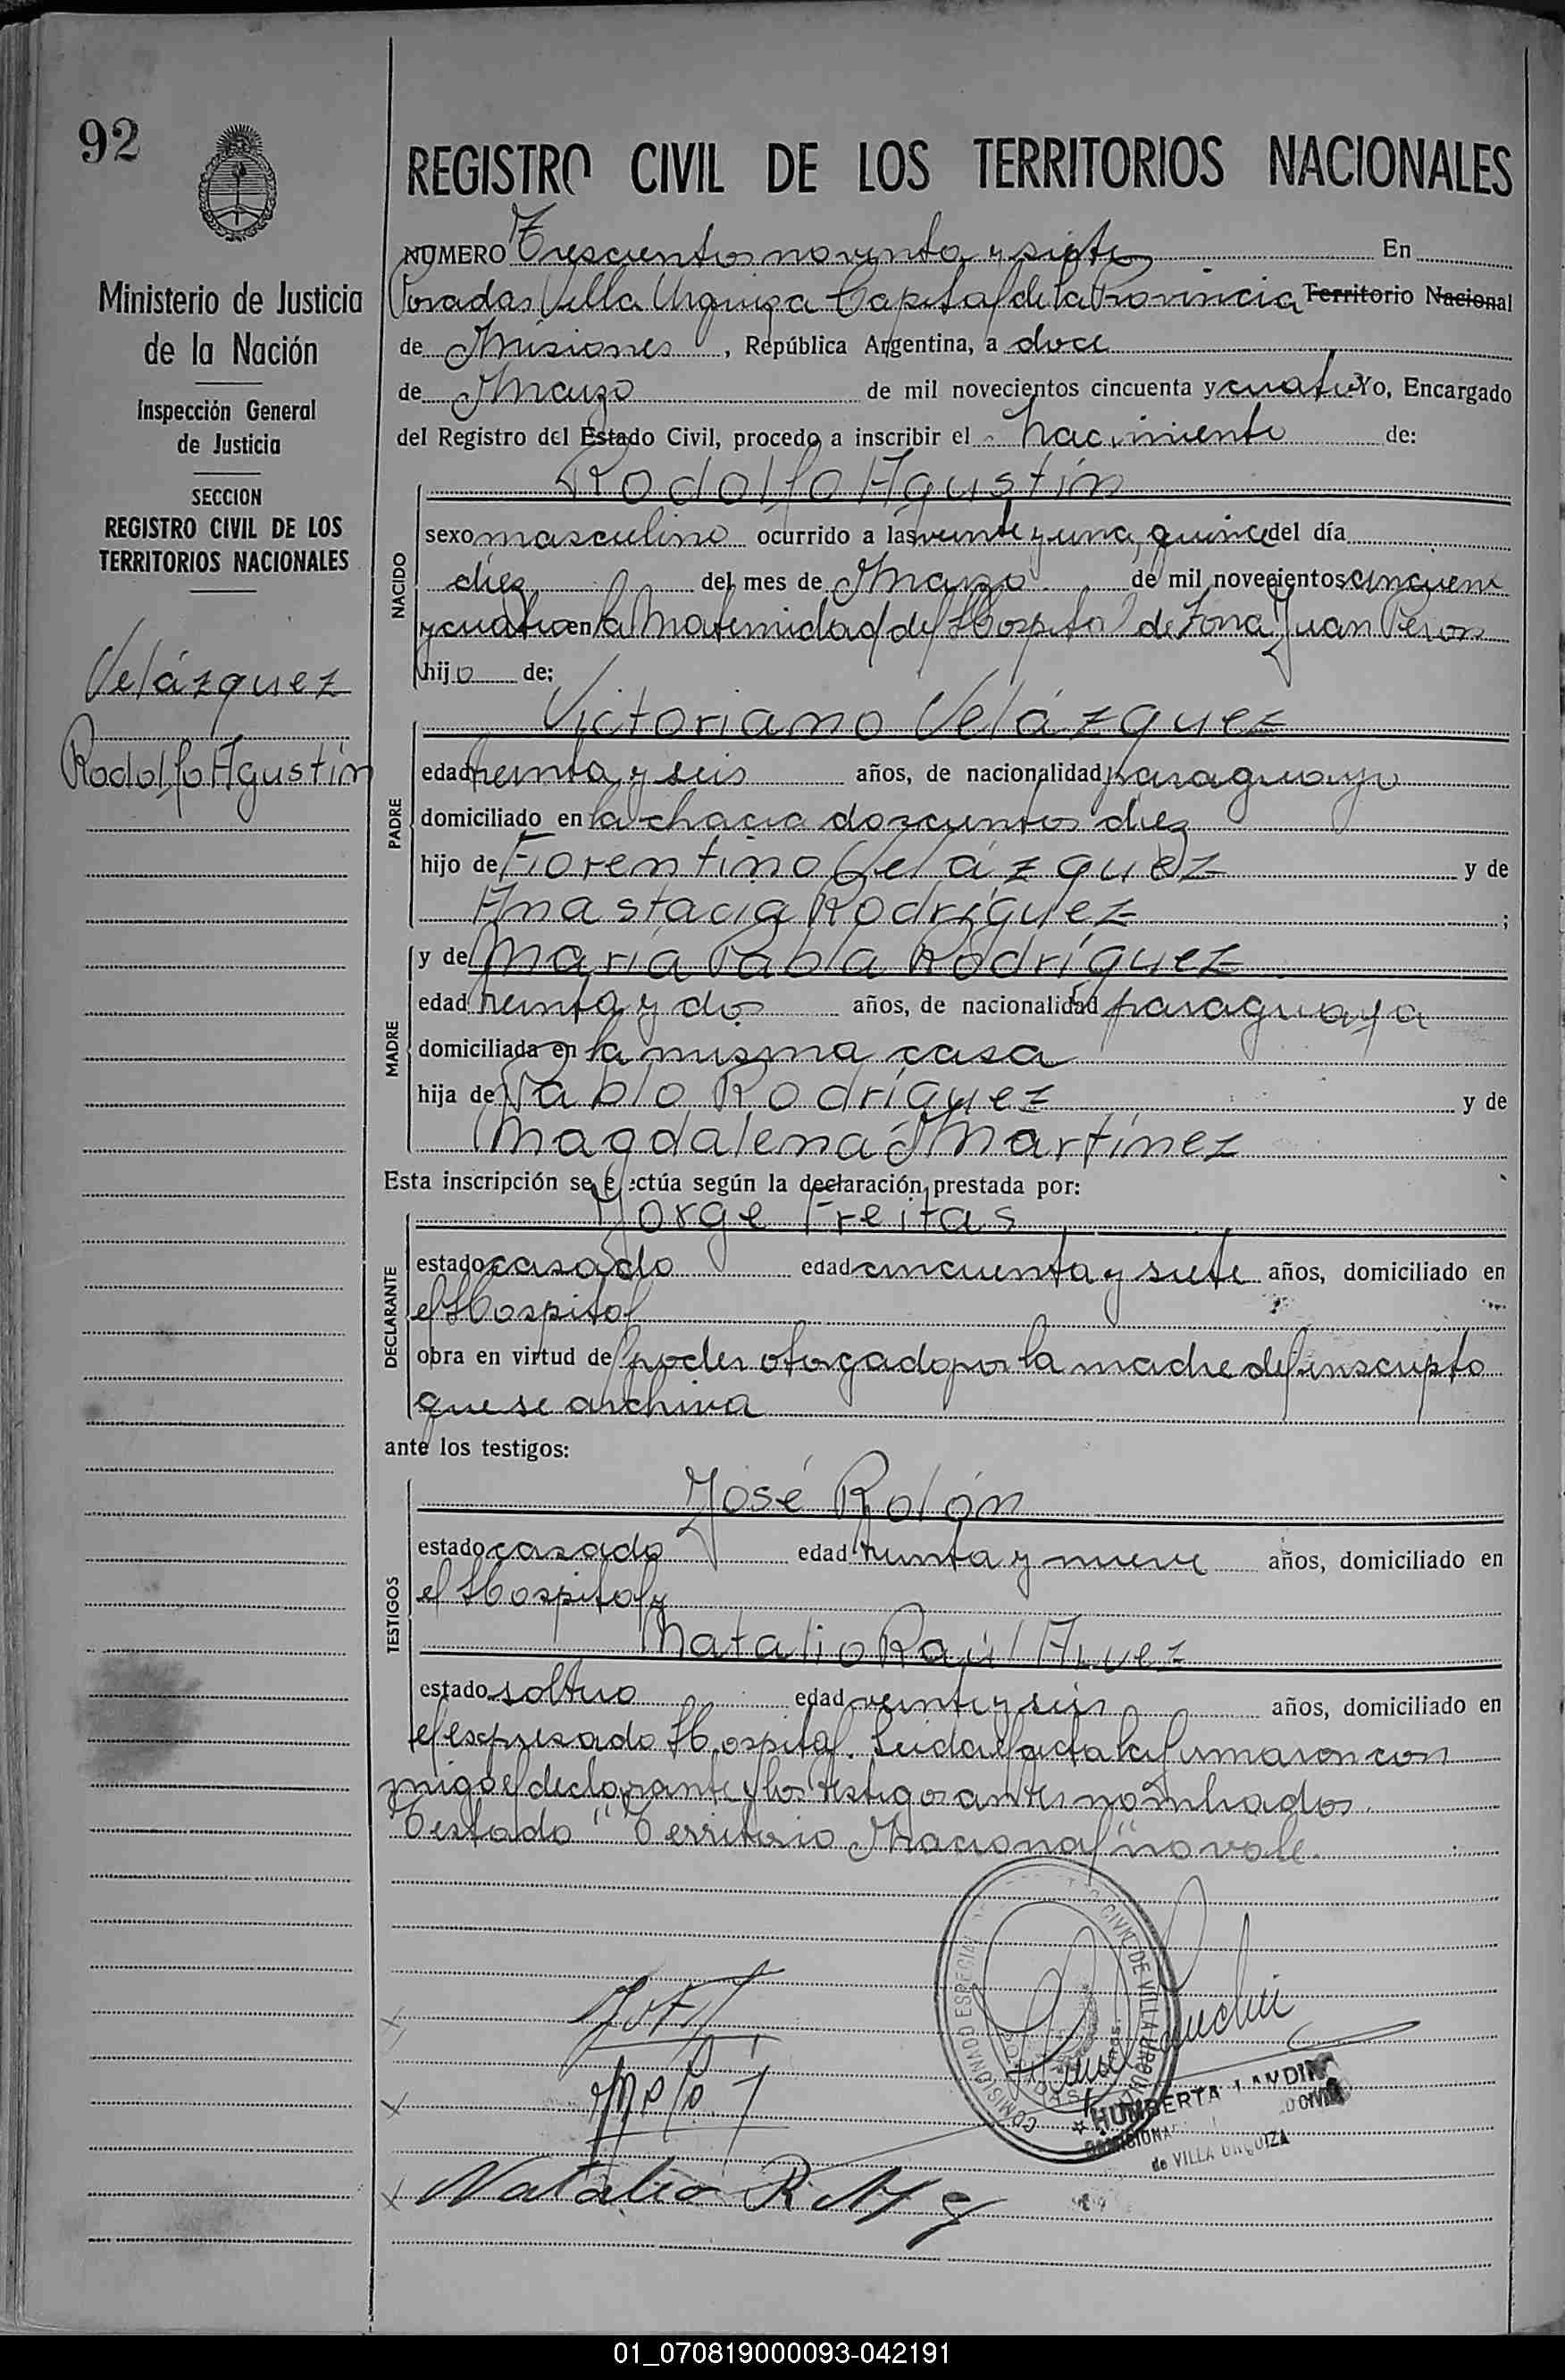 92
Ministerio de Justicia
de la Nación
Inspección General
de Justicia
SECCION
REGISTRO CIVIL DE LOS
TERRITORIOS NACIONALES
Velázquez
Rodolfo Agustín
REGISTRO CIVIL DE LOS TERRITORIOS NACIONALES
NUMERO Trescientos noventa y siete En
Posadas Villa Urquiza Capital de la Provincia Territorio Nacional
de Misiones, República Argentina, a doce
de Marzo de mil novecientos cincuenta y cuatro Yo, Encargado
del Registro del Estado Civil, procedo a inscribir el nacimiento de:
Rodolfo Agustín
NACIDO
sexo masculino ocurrido a las veinte y una, quince del día
diez del mes de Marzo de mil novecientos cincuen
y cuatro en la Maternidad del Hospital de Zona Juan Peron
hijo de:
Victoriano Velázquez
PADRE
edad treinta y seis años, de nacionalidad paraguayo
domiciliado en la chacra doscientos diez
hijo de Florentino Velázquez y de
Anastacia Rodríguez ;
MADRE
y de María Pabla Rodríguez
edad treinta y dos años, de nacionalidad paraguaya
domiciliada en la misma casa
hija de Pablo Rodríguez y de
Magdalena Martínez
Esta inscripción se efectúa según la declaración prestada por:
Jorge Freitas
DECLARANTE
estado casado edad cincuenta y siete años, domiciliado en
el Hospital
obra en virtud del poder otorgado por la madre del inscripto
que se archiva
ante los testigos:
José Rolón
TESTIGOS
estado casado edad treinta y nueve años, domiciliado en
el Hospital y
Natalio Raúl
estado soltero edad veinte y seis años, domiciliado en
el expresado Hospital. Leida el acta la firmaron con
migo el declarante y los testigos antes nombrados.
Testado "Territorio Nacional" no vale.
COMISIONADO ESPECIAL CIVIL DE VILLA URQUIZA
HUMBERTA LANDIN
COMISIONA
de VILLA URQUIZA
Natalio R
01_070819000093-042191